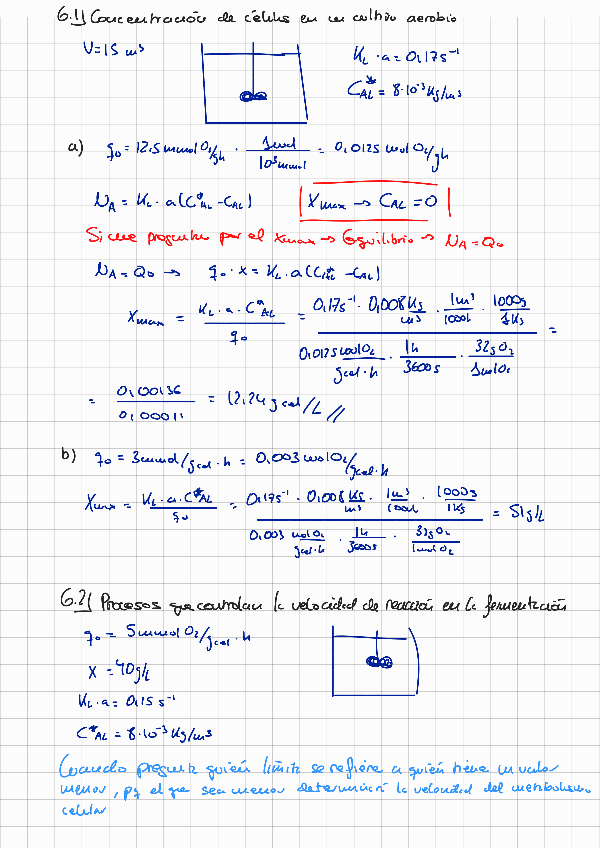 6.1) Concentración de células en un cultivo aerobio
V=15 m³
K_L · a = 0,17 s⁻¹
C*_AL = 8·10⁻³ Kg/m³
a) q₀ = 12.5 mmol O₂/gh · 1mol/10³mmol = 0,0125 mol O₂/gh
N_A = K_L · a (C*_AL - C_AL) | X_max → C_AL = 0 |
Si me preguntan por el Xmax → Equilibrio → N_A = Q₀
N_A = Q₀ → q₀ · x = K_L · a (C*_AL - C_AL)
X_max = K_L · a · C*_AL / q₀ = 0,17s⁻¹ · 0,008 Kg/m³ · 1m³/1000L · 1000g/1Kg / 0,0125 mol O₂/gcel·h · 1h/3600s · 32g O₂/1mol O₂ =
= 0,00136 / 0,00011 = 12,24 g cel/L //
b) q₀ = 3mmol/gcel·h = 0,003 mol O₂/gcel·h
X_max = K_L · a · C*_AL / q₀ = 0,17s⁻¹ · 0,008 Kg/m³ · 1m³/1000L · 1000g/1Kg / 0,003 mol O₂/gcel·h · 1h/3600s · 32g O₂/1mol O₂ = 51g/L
6.2) Procesos que controlan la velocidad de reacción en la fermentación
q₀ = 5mmol O₂/gcel · h
X = 40g/L
K_L · a = 0,15 s⁻¹
C*_AL = 8·10⁻³ Kg/m³
Cuando pregunta quién limita se refiere a quién tiene un valor
menor, pq el que sea menor determinará la velocidad del metabolismo
celular